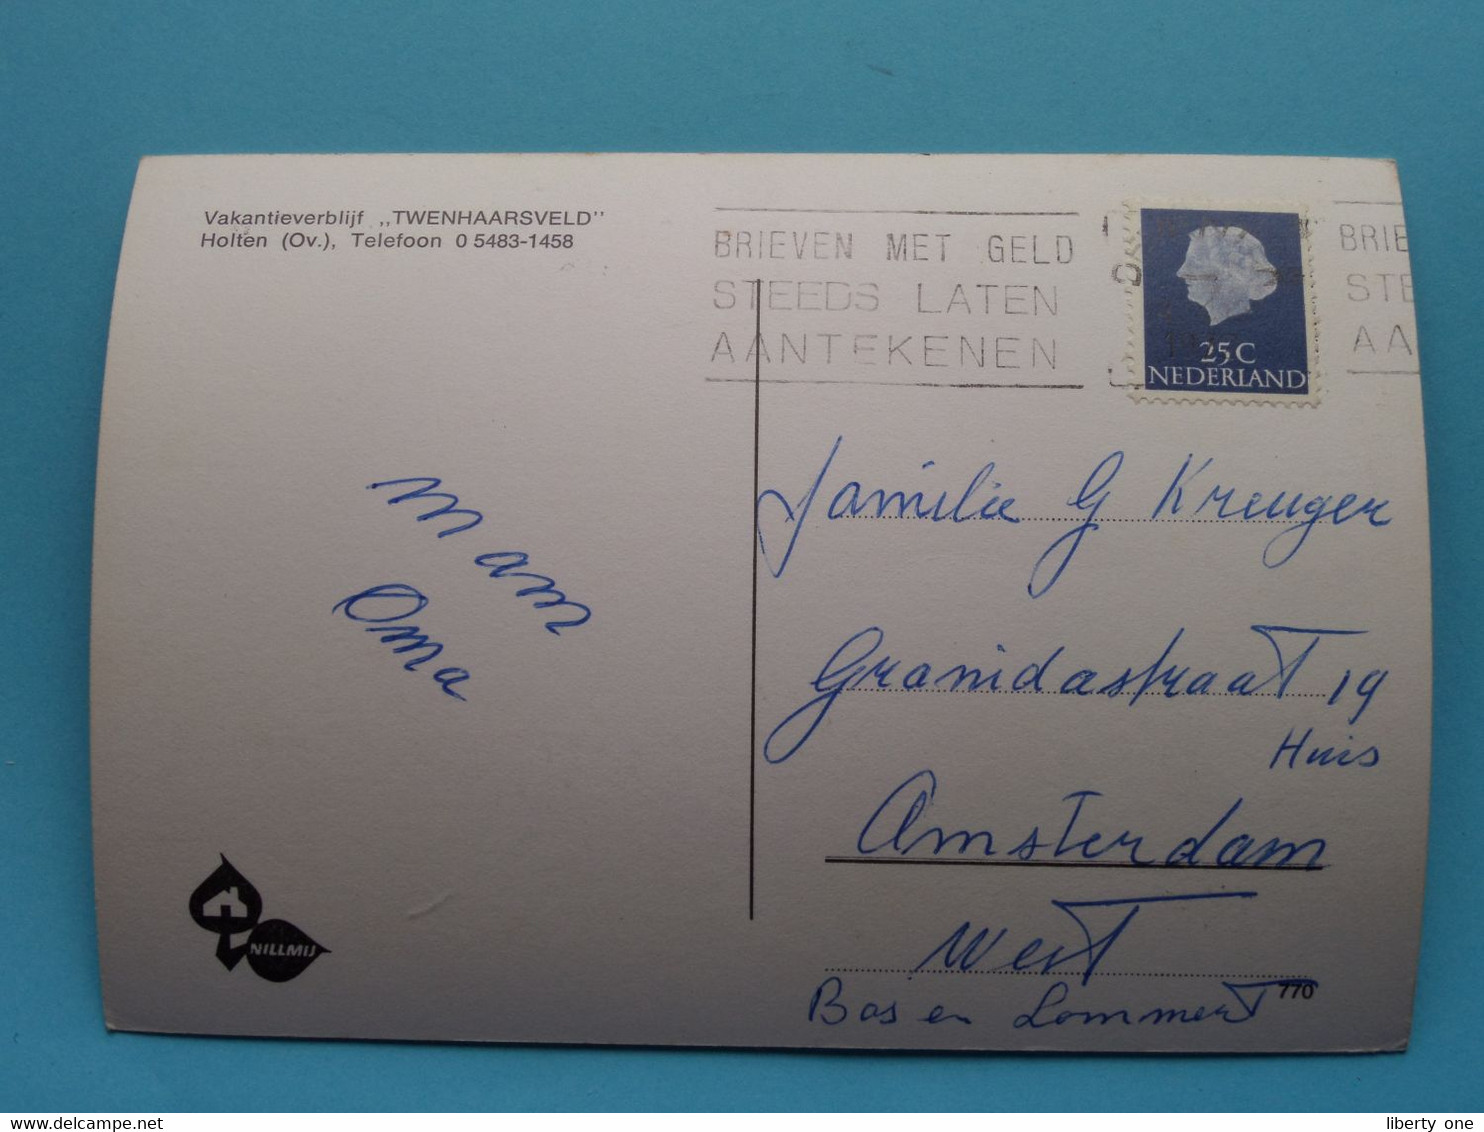 Vakantieverblijf „TWENHAARSVELD”
Holten (Ov.), Telefoon 0 5483-1458
BRIEVEN MET GELD
STEEDS LATEN
AANTEKENEN
25C
NEDERLAND
BRIE
STE
AA
Mam
Oma
familie G Kreuger
Granidastraat 19
Huis
Amsterdam
West
Bos en Lommert
770
NILLMIJ
liberty one